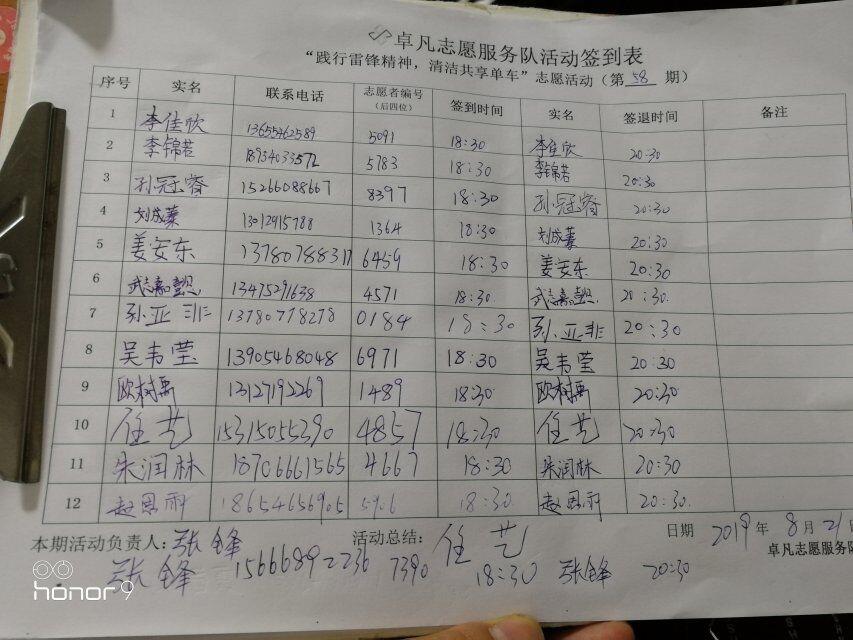 卓凡志愿服务队活动签到表
“践行雷锋精神，清洁共享单车”志愿活动（第 58 期）
序号 实名 联系电话 志愿者编号（后四位） 签到时间 实名 签退时间 备注
1 李佳欣 13655462589 5091 18:30 李佳欣 20:30
2 李锦若 18954033572 5783 18:30 李锦若 20:30
3 孙冠睿 15266088667 8397 18:30 孙冠睿 20:30
4 刘成蓁 13012915788 1364 18:30 刘成蓁 20:30
5 姜安东 13780788317 6459 18:30 姜安东 20:30
6 武嘉懿 13475291638 4571 18:30 武嘉懿 20:30
7 孙亚非 13780778278 0184 18:30 孙亚非 20:30
8 吴韦莹 13905468048 6971 18:30 吴韦莹 20:30
9 欧树禹 13127192269 1489 18:30 欧树禹 20:30
10 任艺 15315055390 4857 18:30 任艺 20:30
11 朱润林 18706661565 4667 18:30 朱润林 20:30
12 赵恩利 18654656905 5906 18:30 赵恩利 20:30
本期活动负责人：张锋 活动总结：任艺 日期 2019年8月21
卓凡志愿服务队
张锋 15666892236 7390 18:30 张锋 20:30
honor 9